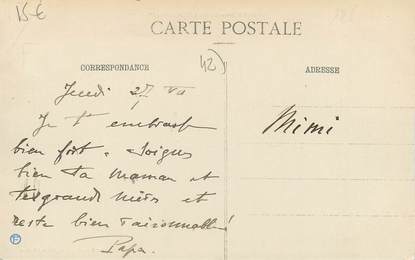 15€
CARTE POSTALE
42)
CORRESPONDANCE
ADRESSE
Jeudi 27
Je t'embrasse
bien fort. Soigne
bien ta maman et
tes grands mères et
reste bien raisonnable!
Papa.
Mimi